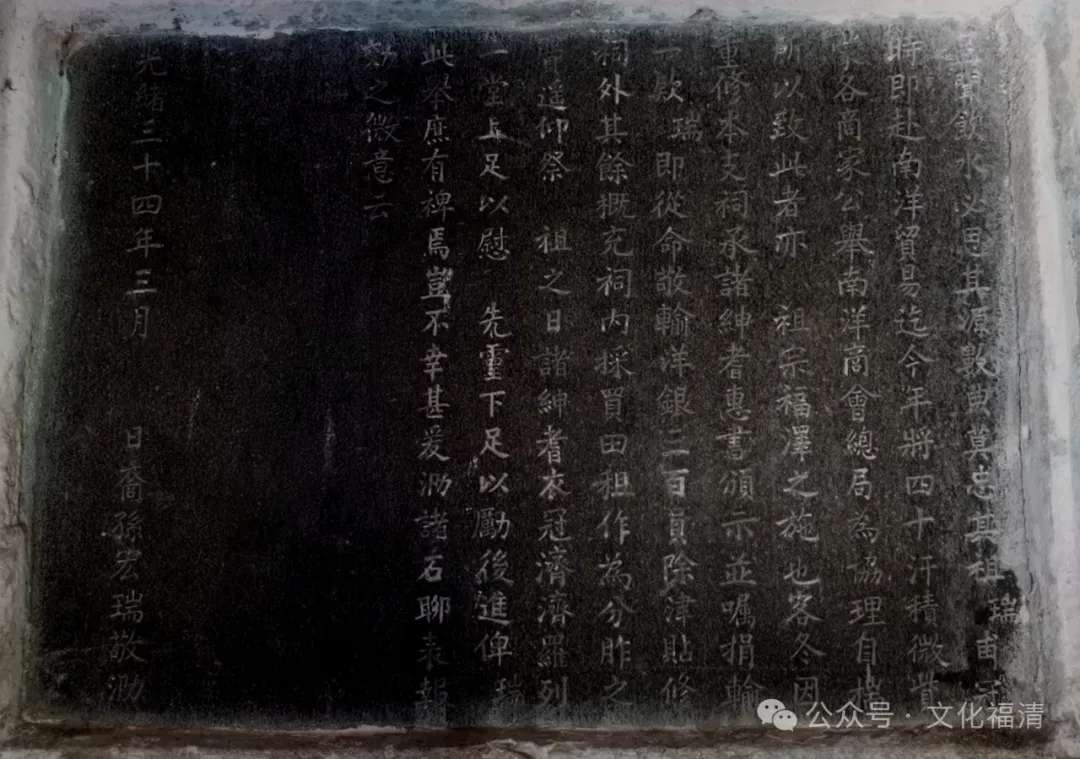 聞飲水必思其源敦典莫忘其祖瑞甫
時即赴南洋貿易迄今年將四十汗積微貲
各商家公舉南洋商會總局為協理自
所以致此者亦 祖宗福澤之施也客冬因
重修本支祠承諸紳耆惠書頒示並囑捐輸
一欵瑞即從命敬輸洋銀三百員除津貼修
祠外其餘概充祠內採買田租作為分胙之
進仰祭 祖之日諸紳耆衣冠濟濟羅列
一堂上足以慰 先靈下足以勵後進俾
此舉庶有裨焉豈不幸甚爰泐諸石聊表報
之微意云
光緒三十四年三月 日裔孫宏瑞敬泐
公众号·文化福清